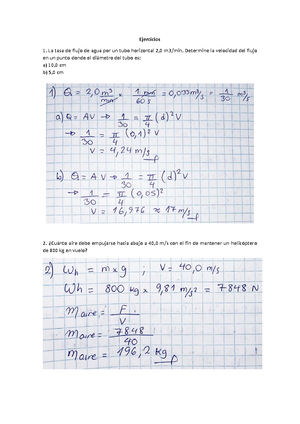 Ejercicios
1. La tasa de flujo de agua por un tubo horizontal 2,0 m3/min. Determine la velocidad del flujo
en un punto donde el diámetro del tubo es:
a) 10,0 cm
b) 5,0 cm
1) Q = 2,0 m³/min × 1 min/60 s = 0,033 m³/s = 1/30 m³/s
a) Q = AV → 1/30 = π/4 (d)² V
→ 1/30 = π/4 (0,1)² V
V = 4,24 m/s
b) Q = AV → 1/30 = π/4 (d)² V
→ 1/30 = π/4 (0,05)²
V = 16,976 ≈ 17 m/s
2. ¿Cuánto aire debe empujarse hacia abajo a 40,0 m/s con el fin de mantener un helicóptero
de 800 kg en vuelo?
2) Wh = m x g ; V = 40,0 m/s
Wh = 800 kg x 9,81 m/s² = 7848 N
m aire = F/V
m aire = 7848/40
m aire = 196,2 kg